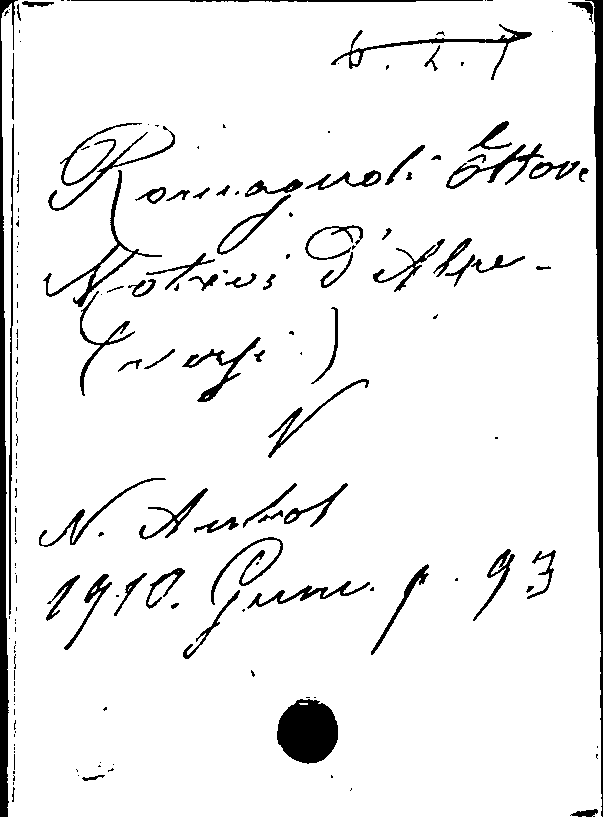 6. 2. 7
Romagnoli Ettore
Motivi d'Alpe -
(versi)
V
N. Antol
1910. Genn. p. 93